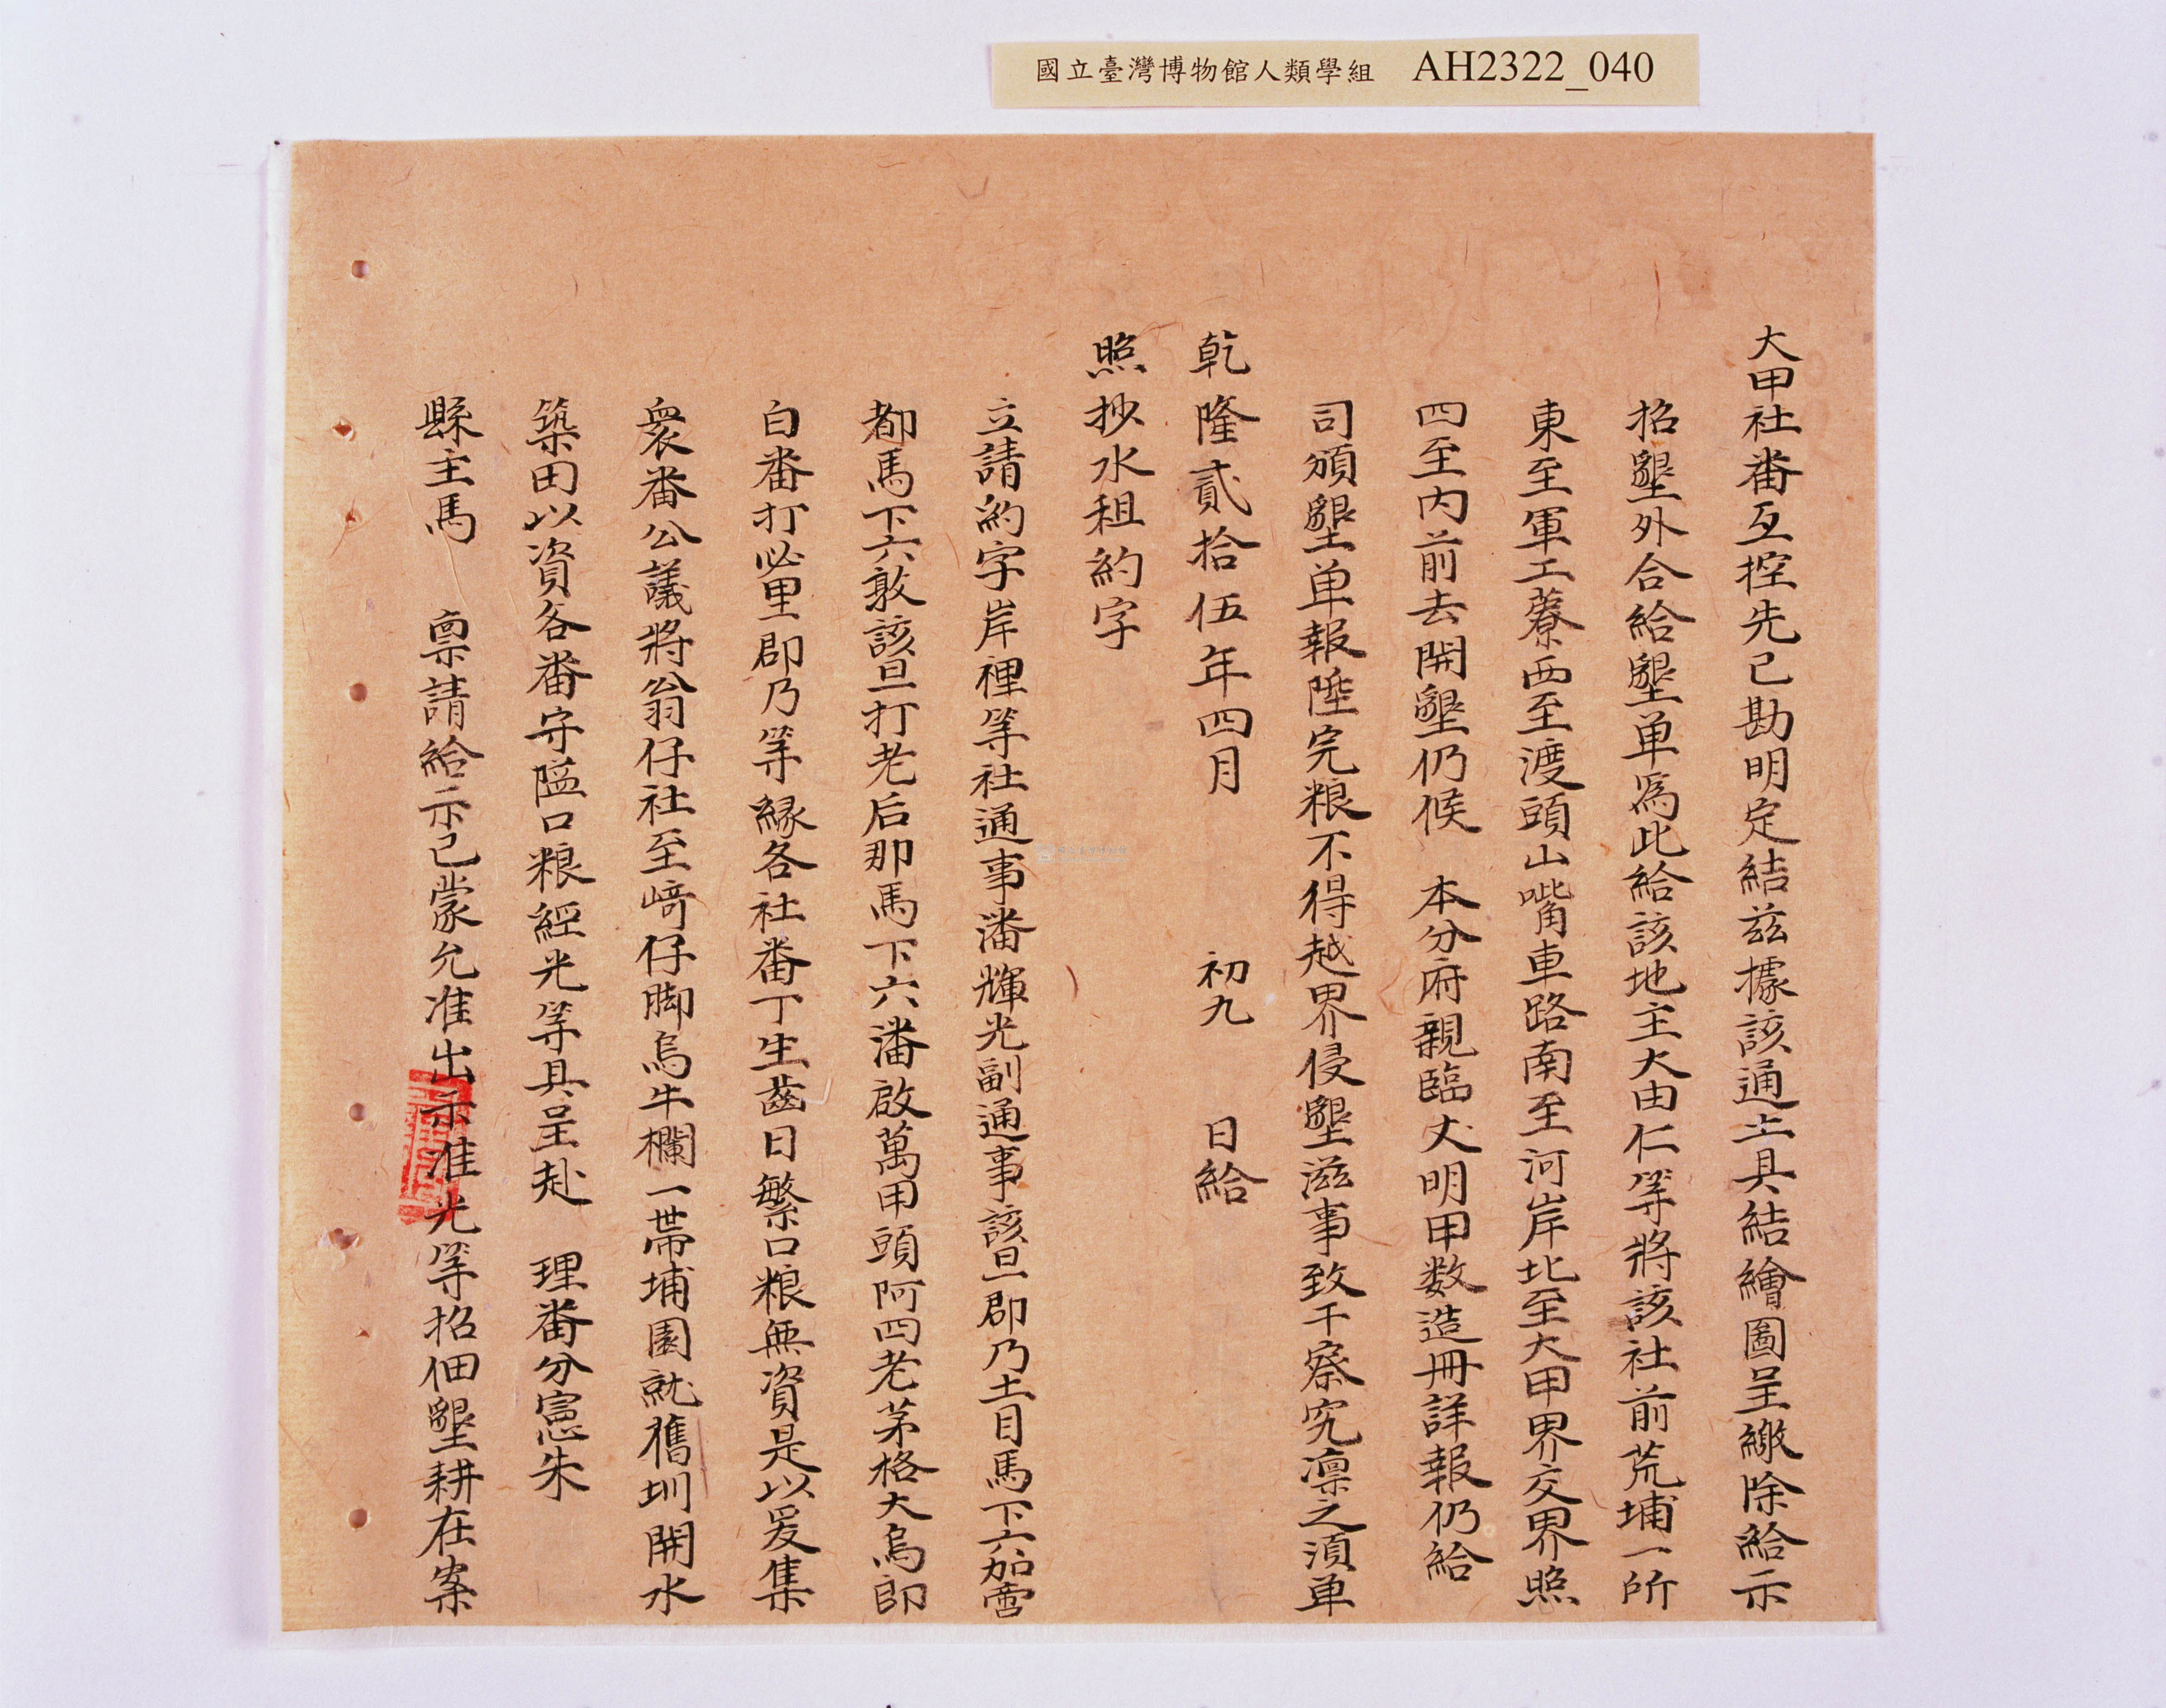 國立臺灣博物館人類學組 AH2322_040
大甲社番互控先已勘明定結茲據該通土具結繪圖呈繳除給示
招墾外合給墾单爲此給該地主大由仁等將該社前荒埔一所
東至軍工藔西至渡頭山嘴車路南至河岸北至大甲界交界照
四至内前去開墾仍候 本分府親臨丈明甲数造冊詳報仍給
司頒墾单報陞完粮不得越界侵墾滋事致干察究凛之湏单
乾隆貳拾伍年四月 初九 日給
照抄水租約字
立請約字岸裡等社通事潘輝光副通事該旦郡乃土目馬下六加
都馬下六敦該旦打老后那馬下六潘啟萬甲頭阿四老茅格大烏郎
白番打必里郡乃等緣各社番丁生齒日繁口粮無資是以爰集
衆番公議將翁仔社至﨑仔脚烏牛欄一帶埔園就舊圳開水
築田以資各番守隘口粮經光等具呈赴 理番分憲朱
縣主馬 禀請給示已蒙允准出示准光等招佃墾耕在案